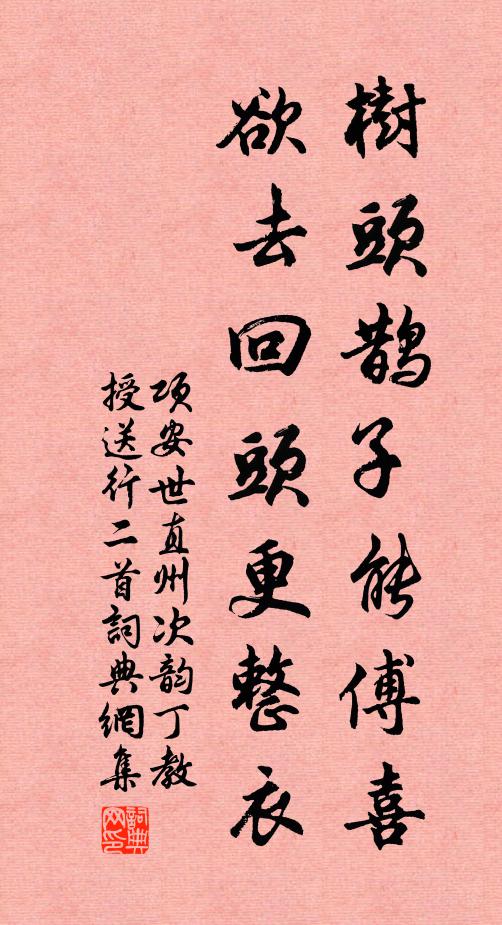 樹頭鵲子能傳喜
欲去回頭更整衣
項安世直州次韵丁教
授送行二首詞典網集
詞典网印